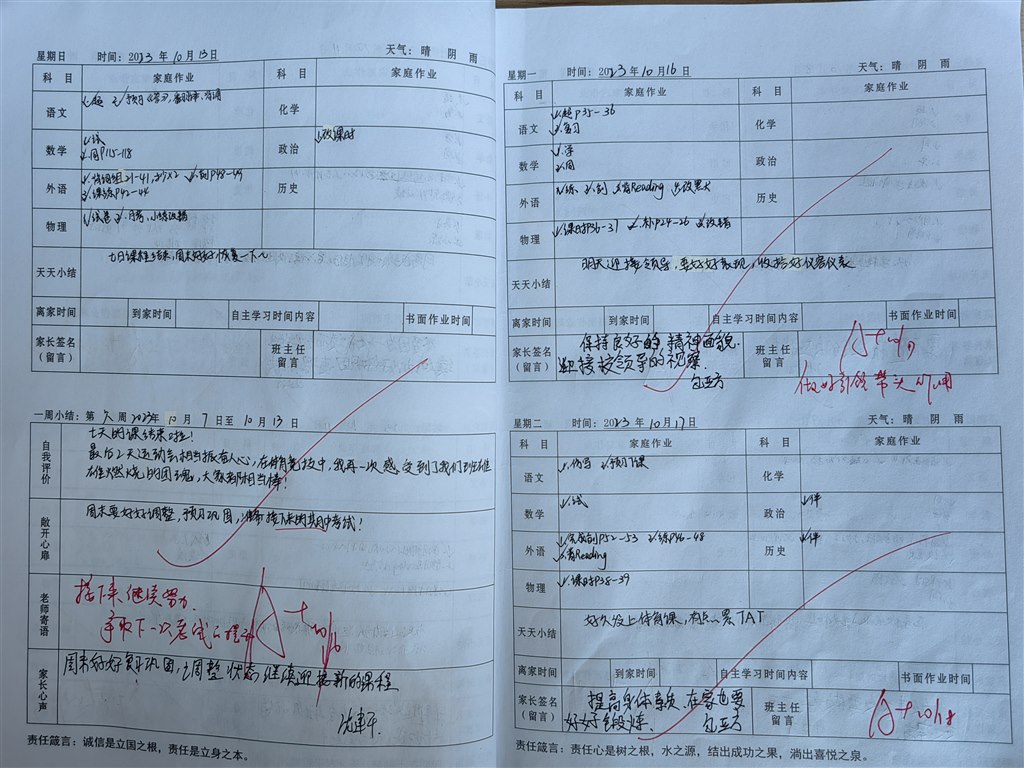 星期日 时间：2023年10月13日 天气：晴 阴 雨
科 目 家庭作业 科 目 家庭作业
语文 化学
数学 1.试 2.周P115-118 政治 1.改课时
外语 历史
2.课练P42-44
物理
天天小结 七日课程结束，周末好好恢复一下～
离家时间 到家时间 自主学习时间内容 书面作业时间
家长签名（留言） 班主任留言
一周小结：第 六 周 2023年 10 月 7 日至 10 月 13 日
自我评价 七天的课结束啦！
最后2天运动会相当振奋人心，在体育竞技中，我再一次感受到了我们班
燃烧的团魂，大家都相当棒！
敞开心扉 周末要好好调整，预习巩固，准备接下来的期中考试！
老师寄语 接下来继续努力，
争取下一次考试
家长心声 周末好好复习巩固，调整状态，继续迎接新的课程
责任箴言：诚信是立国之根，责任是立身之本。
星期一 时间：2023年10月16日 天气：晴 阴 雨
科 目 家庭作业 科 目 家庭作业
语文 1.超P35-36 2.复习 化学
数学 2.周 政治
外语 1.练 2.创 3.背Reading 历史
物理 1.课时P36-37 2.补P24-26
天天小结 明天迎接领导，要好好表现，收拾好仪容仪表
离家时间 到家时间 自主学习时间内容 书面作业时间
家长签名（留言） 保持良好的精神面貌，
迎接领导的视察。 班主任留言 A+ 10/17
做好引领带头作用
星期二 时间：2023年10月17日 天气：晴 阴 雨
科 目 家庭作业 科 目 家庭作业
语文 1.仿写 2.预习下课 化学
数学 1.试 政治 1.伴
外语 1.完成创P52-53 2.练P46-48 历史 1.伴
3.背Reading
物理 1.课时P38-39
天天小结 好久没上体育课，有点累TAT
离家时间 到家时间 自主学习时间内容 书面作业时间
家长签名（留言） 提高身体素质，在家也要
好好锻炼。 班主任留言 A+ 10/18
责任箴言：责任心是树之根，水之源，结出成功之果，淌出喜悦之泉。